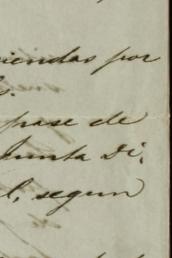 iendas por
s.
frase de
Junta Di,
l, segun